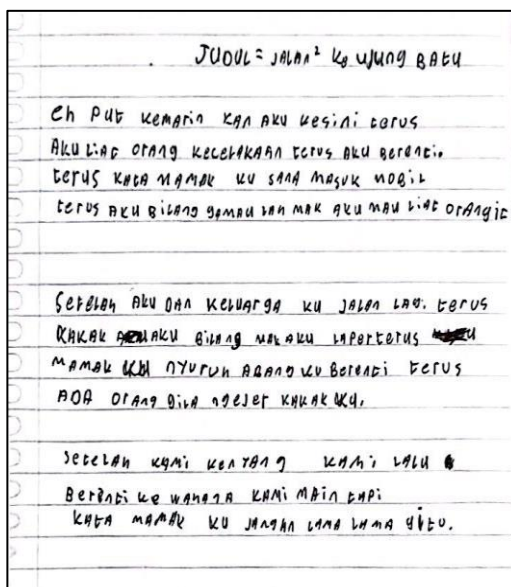 JUDUL = JALAN² KE UJUNG BATU
Eh Put kemarin kan aku kesini terus
Aku liat orang kecelakaan terus aku berenti.
terus kata mamak ku sana masuk mobil
terus aku bilang gamau lah mak aku mau liat orangit
Setelah aku dan keluarga ku jalan lagi. terus
kakak aku bilang mak aku laper terus
mamak ku nyuruh abang ku berenti terus
ada orang gila ngejer kakak ku.
Setelah kami kenyang kami lalu
Berenti ke wahana kami main tapi
kata mamak ku jangan lama lama gitu.